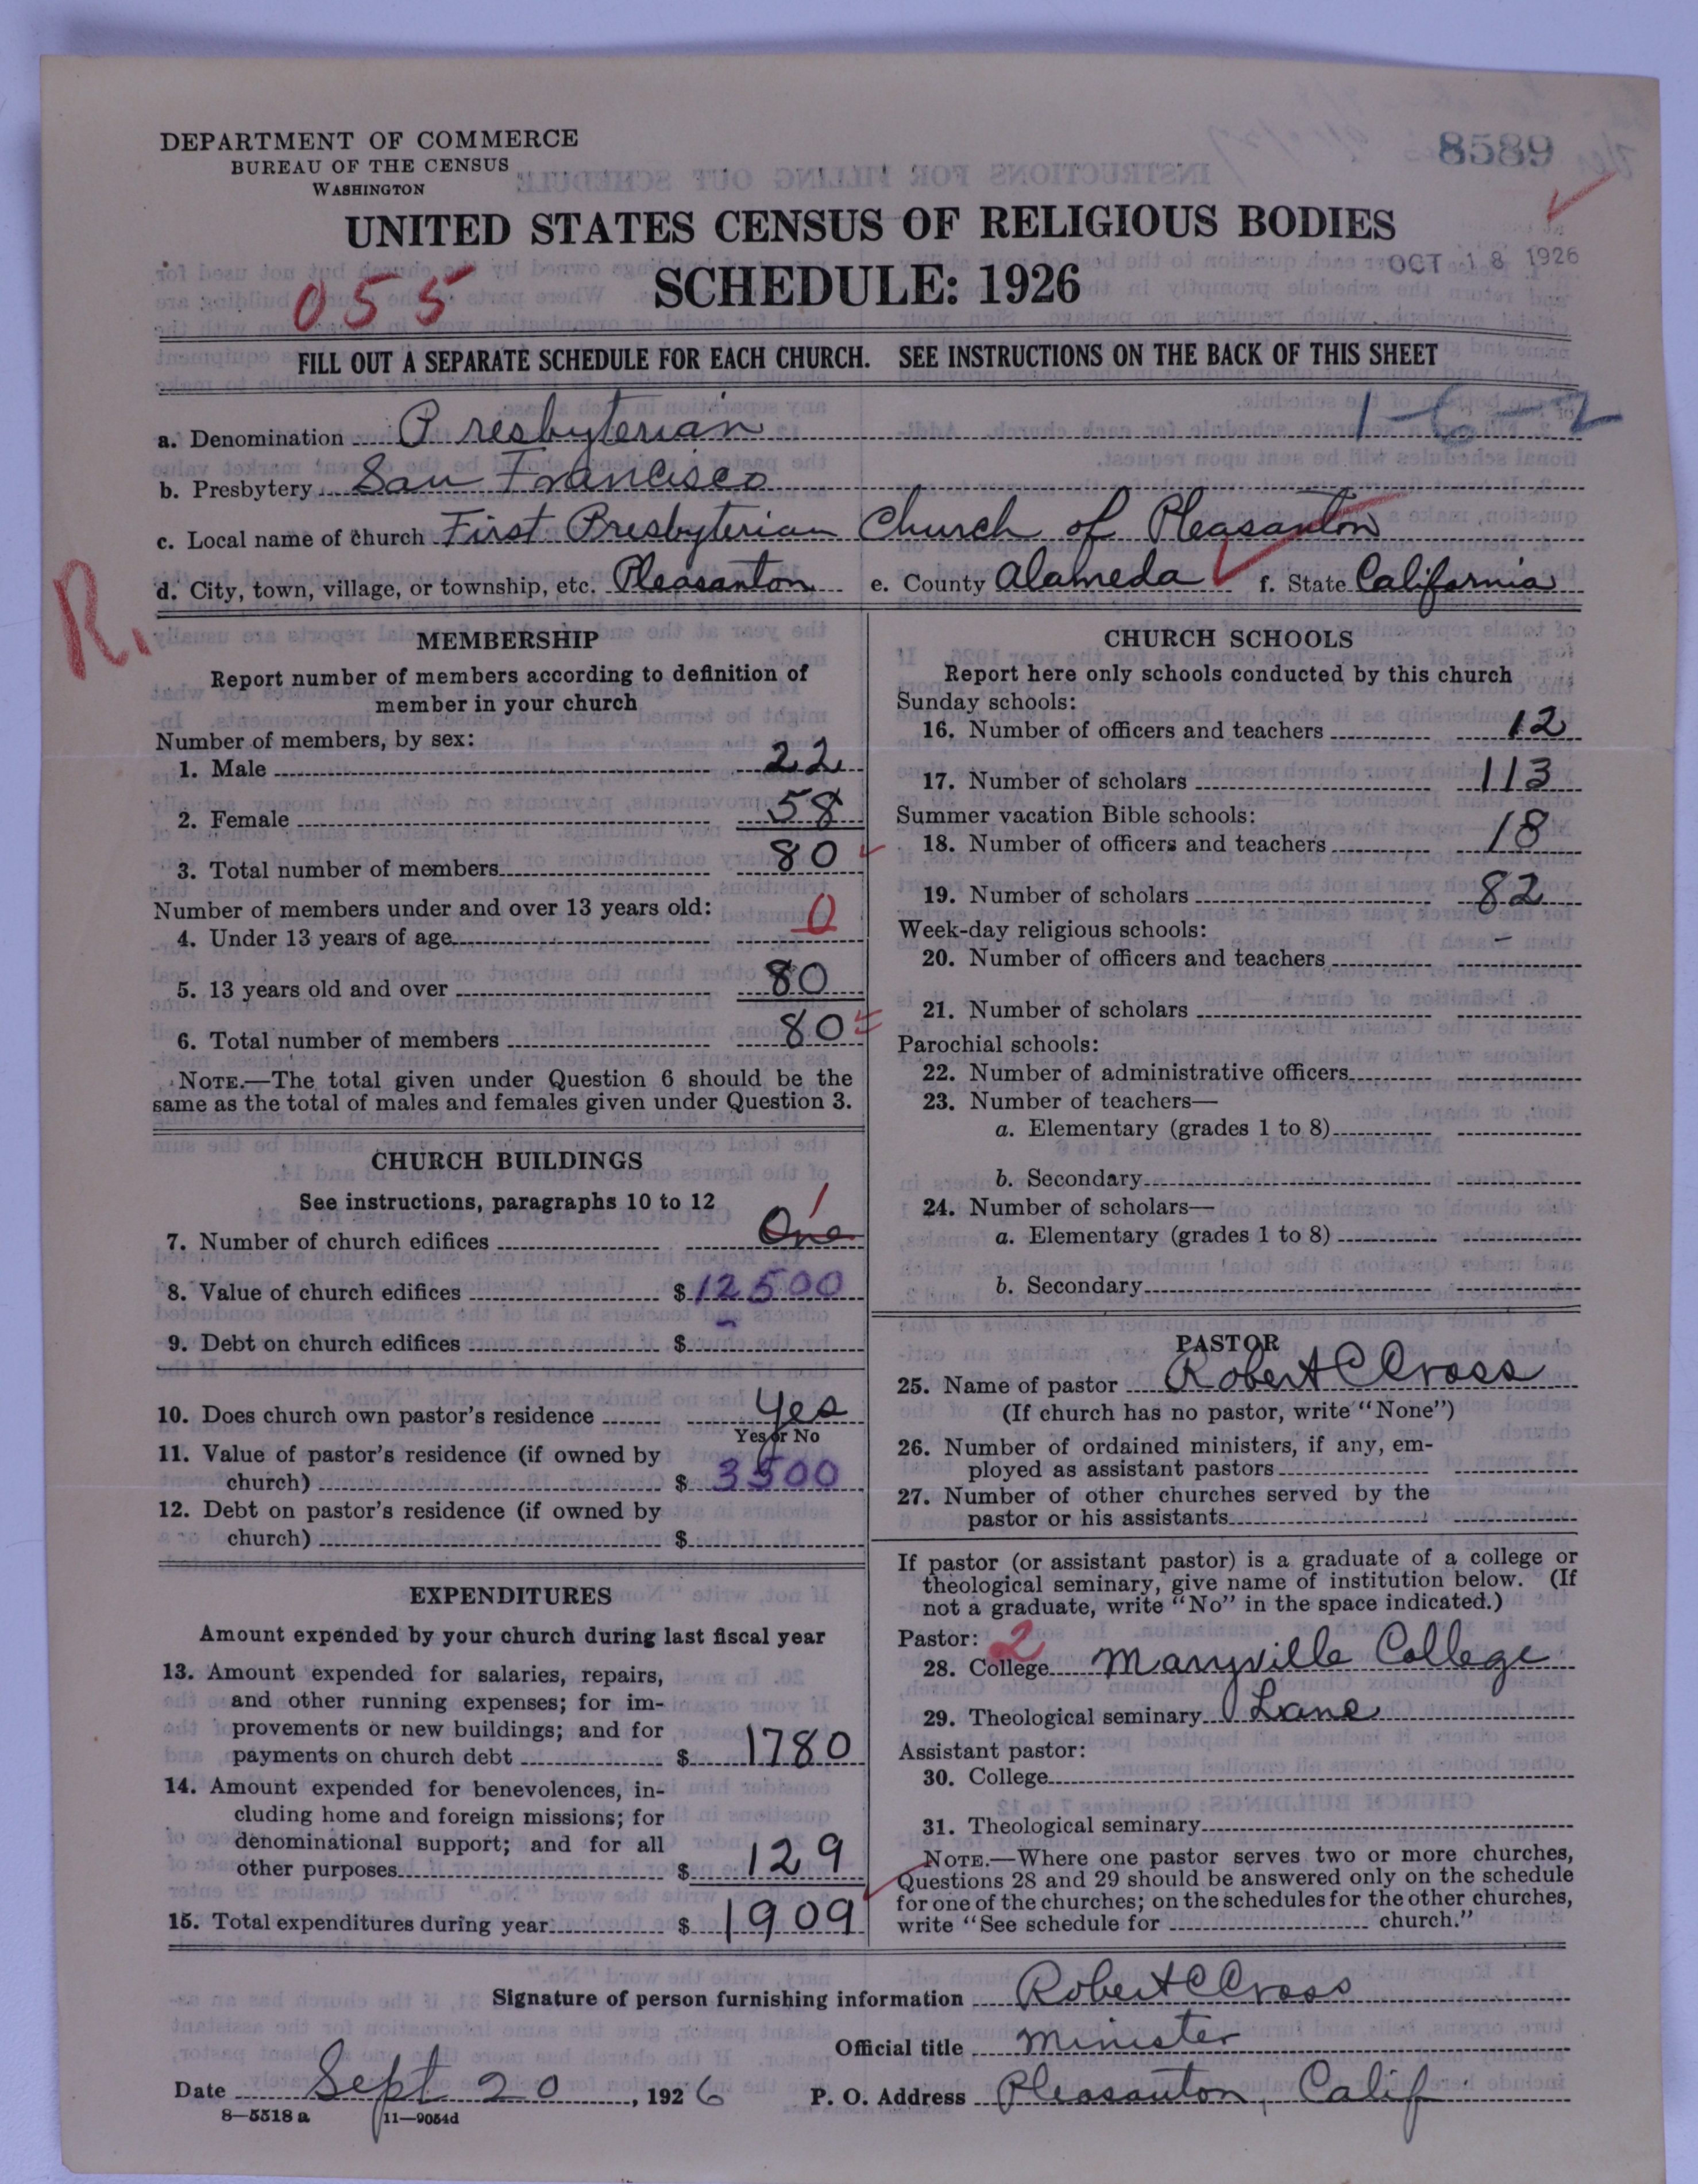 DEPARTMENT OF COMMERCE
BUREAU OF THE CENSUS
WASHINGTON
8589
UNITED STATES CENSUS OF RELIGIOUS BODIES
SCHEDULE: 1926
OCT 18 1926
055
FILL OUT A SEPARATE SCHEDULE FOR EACH CHURCH. SEE INSTRUCTIONS ON THE BACK OF THIS SHEET
1-6-2
a. Denomination Presbyterian
b. Presbytery San Francisco
c. Local name of church First Presbyterian Church of Pleasanton
d. City, town, village, or township, etc. Pleasanton e. County Alameda f. State California
R.
MEMBERSHIP
Report number of members according to definition of
member in your church
Number of members, by sex:
1. Male 22
2. Female 58
3. Total number of members 80
Number of members under and over 13 years old:
4. Under 13 years of age 0
5. 13 years old and over 80
6. Total number of members 80
NOTE.—The total given under Question 6 should be the
same as the total of males and females given under Question 3.
CHURCH BUILDINGS
See instructions, paragraphs 10 to 12
7. Number of church edifices One 1
8. Value of church edifices $ 12500
9. Debt on church edifices $ -
10. Does church own pastor's residence Yes
Yes or No
11. Value of pastor's residence (if owned by
church) $ 3500
12. Debt on pastor's residence (if owned by
church) $
EXPENDITURES
Amount expended by your church during last fiscal year
13. Amount expended for salaries, repairs,
and other running expenses; for im-
provements or new buildings; and for
payments on church debt $ 1780
14. Amount expended for benevolences, in-
cluding home and foreign missions; for
denominational support; and for all
other purposes $ 129
15. Total expenditures during year $ 1909
CHURCH SCHOOLS
Report here only schools conducted by this church
Sunday schools:
16. Number of officers and teachers 12
17. Number of scholars 113
Summer vacation Bible schools:
18. Number of officers and teachers 18
19. Number of scholars 82
Week-day religious schools:
20. Number of officers and teachers -
21. Number of scholars
Parochial schools:
22. Number of administrative officers
23. Number of teachers—
a. Elementary (grades 1 to 8)
b. Secondary
24. Number of scholars—
a. Elementary (grades 1 to 8)
b. Secondary
PASTOR
25. Name of pastor Robert C Cross
(If church has no pastor, write "None")
26. Number of ordained ministers, if any, em-
ployed as assistant pastors
27. Number of other churches served by the
pastor or his assistants
If pastor (or assistant pastor) is a graduate of a college or
theological seminary, give name of institution below. (If
not a graduate, write "No" in the space indicated.)
Pastor: 2
28. College Maryville College
29. Theological seminary Lane
Assistant pastor:
30. College
31. Theological seminary
NOTE.—Where one pastor serves two or more churches,
Questions 28 and 29 should be answered only on the schedule
for one of the churches; on the schedules for the other churches,
write "See schedule for church."
Signature of person furnishing information Robert C Cross
Official title Minister
Date Sept 20, 1926 P. O. Address Pleasanton, Calif
8—5518 a 11—9054d